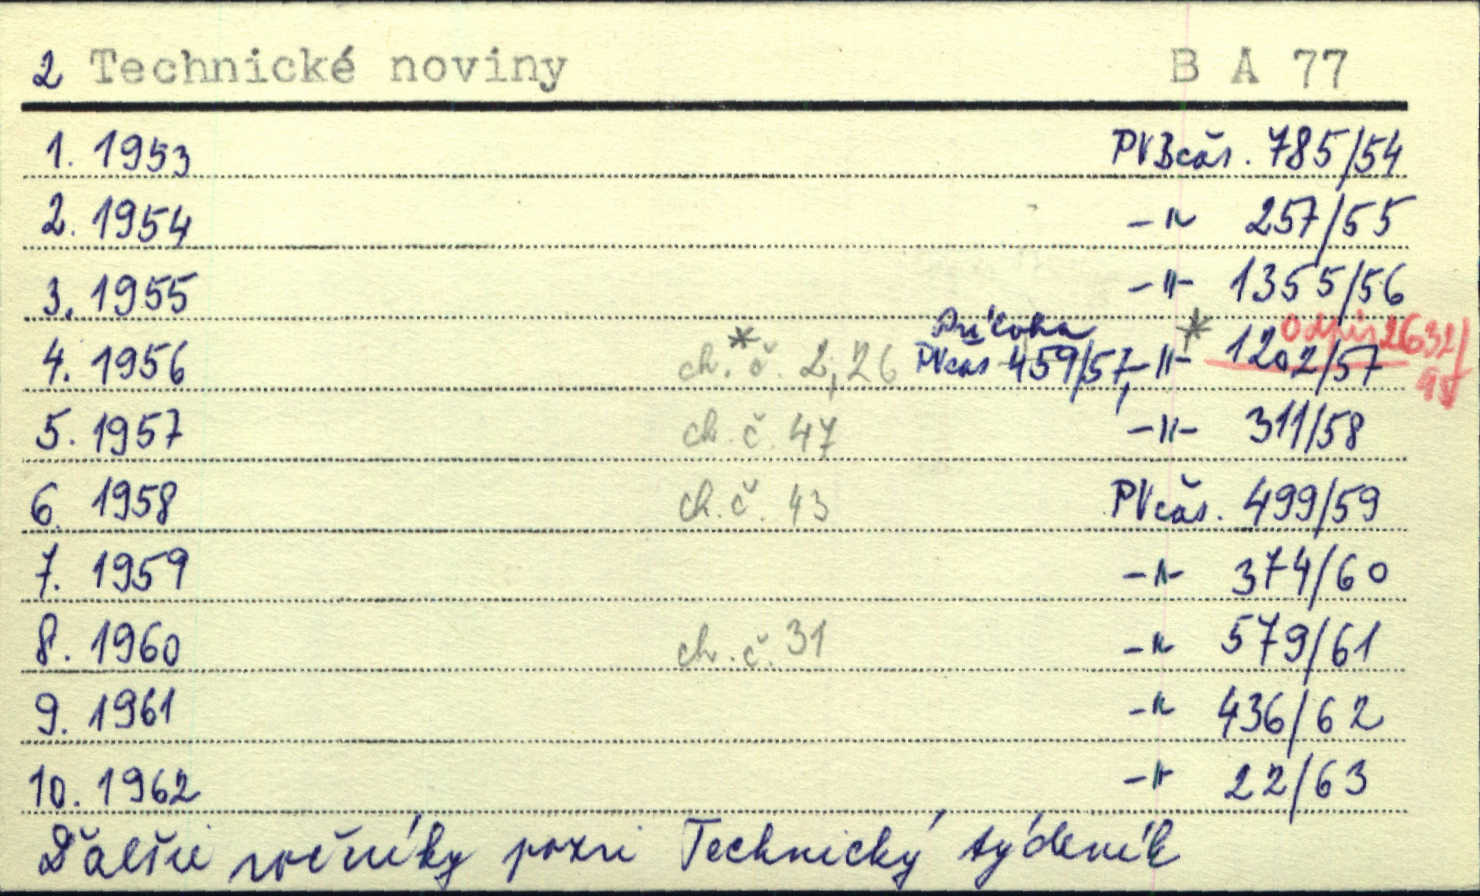 2 Technické noviny B A 77
1. 1953 PVBčas. 785/54
2. 1954 -"- 257/55
3. 1955 -"- 1355/56
4. 1956 ch.* č. 2,26 Príloha PVčas 459/57, -"- * 1202/57 Odpis 2632/
5. 1957 ch. č. 47 -"- 311/58
6. 1958 ch. č. 43 PVčas. 499/59
7. 1959 -"- 374/60
8. 1960 ch. č. 31 -"- 579/61
9. 1961 -"- 436/62
10. 1962 -"- 22/63
Ďalšie ročníky pozri Technický týdeník